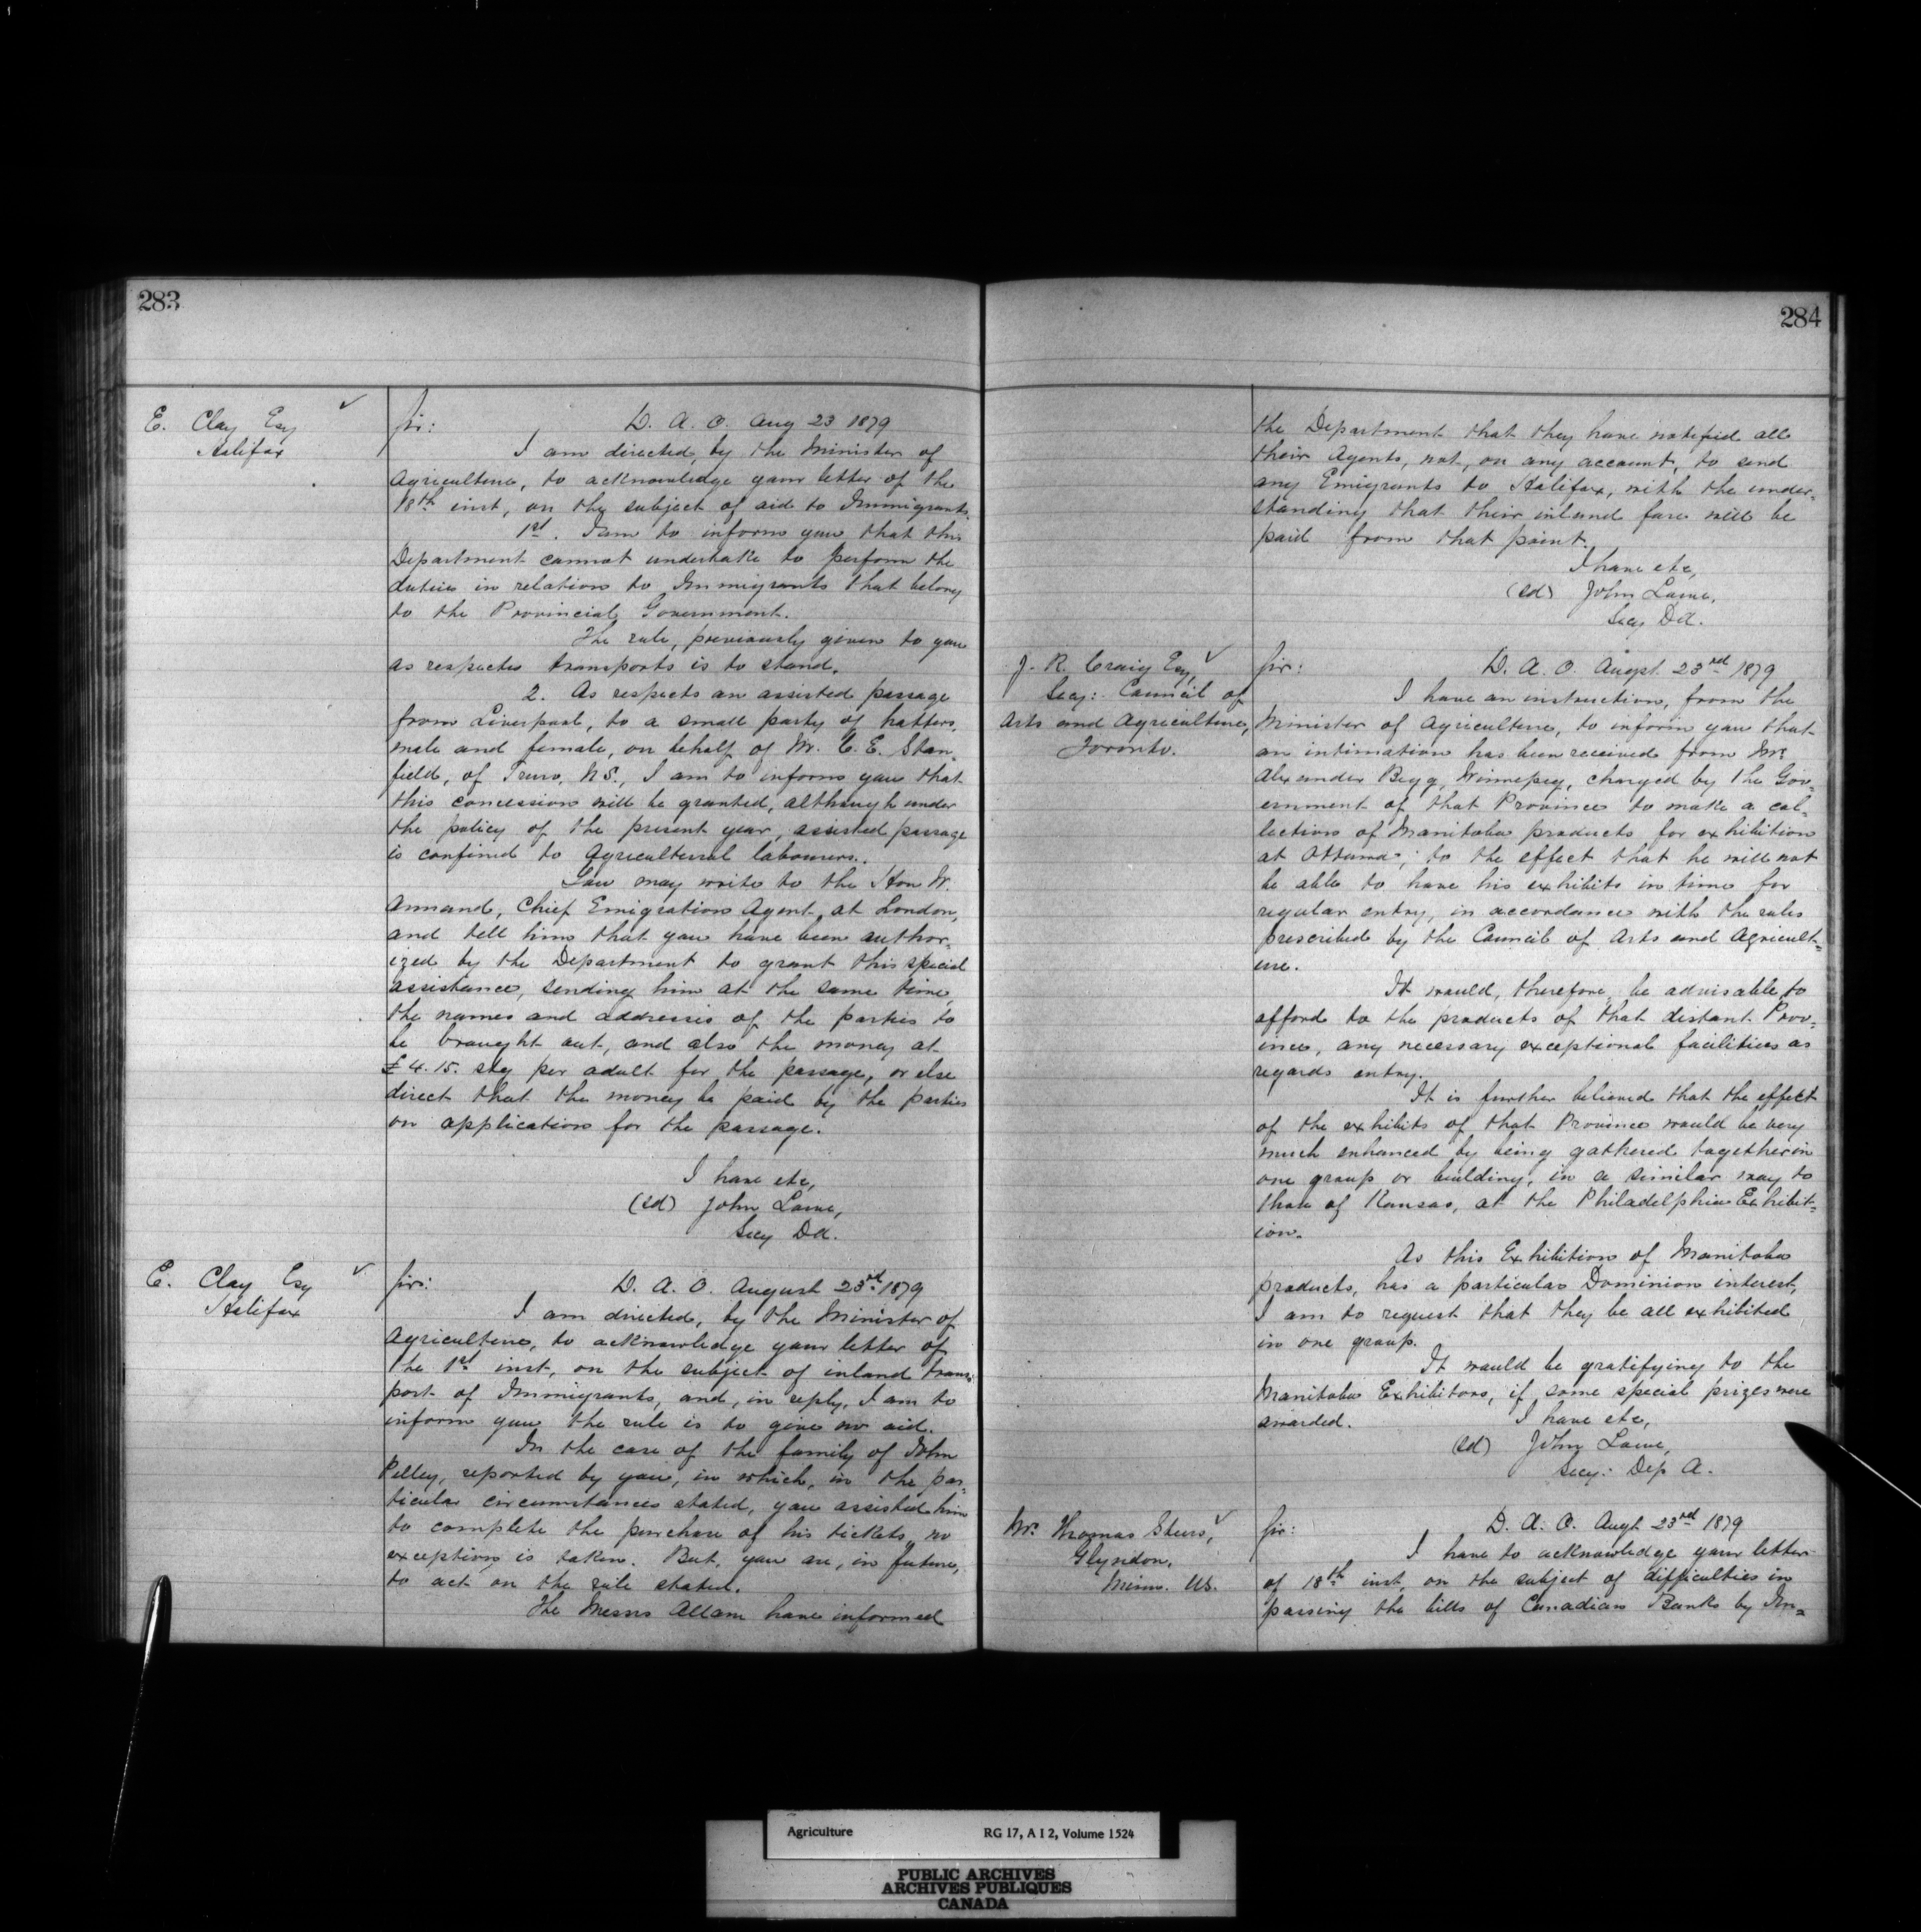 283
E. Clay Esq ✓
Halifax
Sir: D. A. O. Aug 23 1879
I am directed, by the Minister of
Agriculture, to acknowledge your letter of the
18th inst, on the subject of aid to Immigrants.
1st. I am to inform you that this
Department cannot undertake to perform the
duties in relation to Immigrants that belong
to the Provincial Government.
The rule, previously given to you
as respects transports is to stand.
2. As respects an assisted passage
from Liverpool, to a small party of hatters,
male and female, on behalf of Mr. C. E. Stan-
field, of Truro, N.S., I am to inform you that
this concession will be granted, although under
the policy of the present year, assisted passage
is confined to Agricultural labourers.
You may write to the Hon W.
Annand, Chief Emigration Agent, at London,
and tell him that you have been author=
ized by the Department to grant this special
assistance, sending him at the same time,
the names and addresses of the parties to
be brought out, and also the money at
£4.15. stg per adult for the passage, or else
direct that the money be paid by the parties
on application for the passage.
I have etc,
(sd) John Lowe,
Secy DA.
E. Clay Esq ✓
Halifax
Sir: D. A. O. August 23rd 1879
I am directed, by the Minister of
Agriculture, to acknowledge your letter of
the 1st inst, on the subject of inland trans-
port of Immigrants, and, in reply, I am to
inform you the rule is to give no aid.
In the case of the family of John
Pelley, reported by you, in which, in the par-
ticular circumstances stated, you assisted him
to complete the purchase of his tickets, no
exception is taken. But, you are, in future,
to act on the rule stated.
The Messrs Allan have informed
284
the Department that they have notified all
their Agents, not, on any account, to send
any Emigrants to Halifax, with the under=
standing that their inland fare will be
paid from that point.
I have etc,
(sd) John Lowe,
Secy DA.
J. R. Craig Esq, ✓
Secy: Council of
Arts and Agriculture,
Toronto.
Sir: D. A. O. Augst 23rd 1879
I have an instruction, from the
Minister of Agriculture, to inform you that
an intimation has been received from Mr
Alexander Begg, Winnepeg, charged by the Gov-
ernment of that Province to make a col-
lection of Manitoba products for exhibition
at Ottawa; to the effect that he will not
be able to have his exhibits in time for
regular entry, in accordance with the rules
prescribed by the Council of Arts and Agricult=
ure.
It would, therefore, be advisable, to
afford to the products of that distant Prov=
ince, any necessary exceptional facilities as
regards entry.
It is further believed that the effect
of the exhibits of that Province would be very
much enhanced by being gathered together in
one group or building, in a similar way to
those of Kansas, at the Philadelphia Exhibit=
ion.
As this Exhibition of Manitoba
products, has a particular Dominion interest,
I am to request that they be all exhibited
in one group.
It would be gratifying to the
Manitoba Exhibitors, if some special prizes were
awarded. I have etc,
(sd) John Lowe,
Secy: Dep A.
Mr. Thomas ✓
Glyndon,
Minn. US.
Sir: D. A. O. Augt 23rd 1879
I have to acknowledge your letter
of 18th inst, on the subject of difficulties in
passing the bills of Canadian Banks by Im=
Agriculture RG 17, A I 2, Volume 1524
PUBLIC ARCHIVES
ARCHIVES PUBLIQUES
CANADA